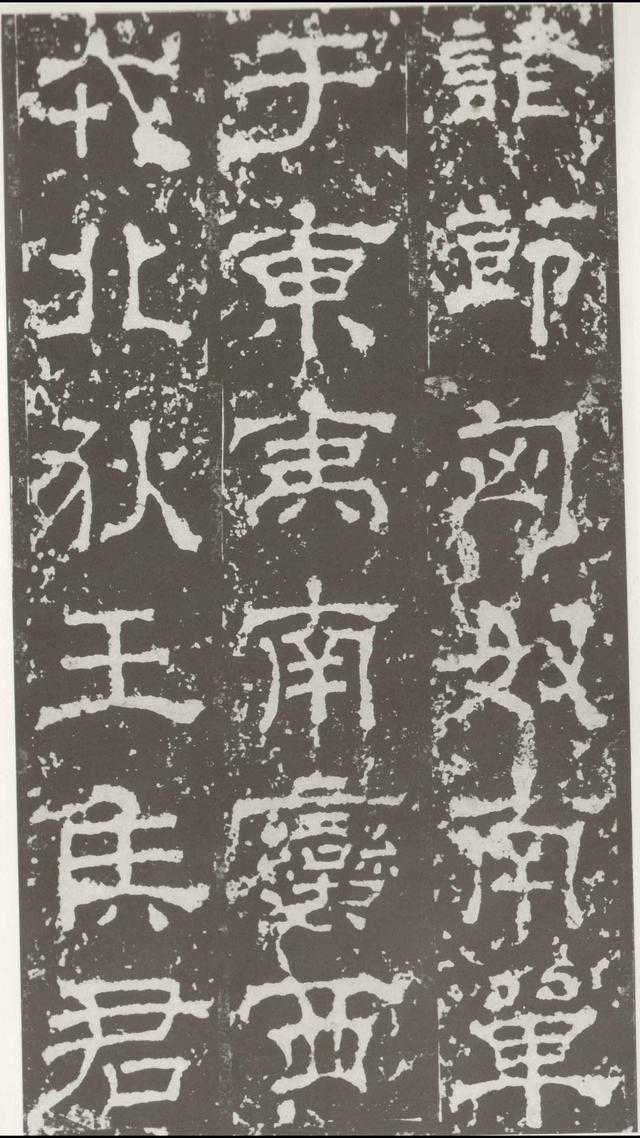 節匈奴南單
于東夷南蠻西
戎北狄王侯君